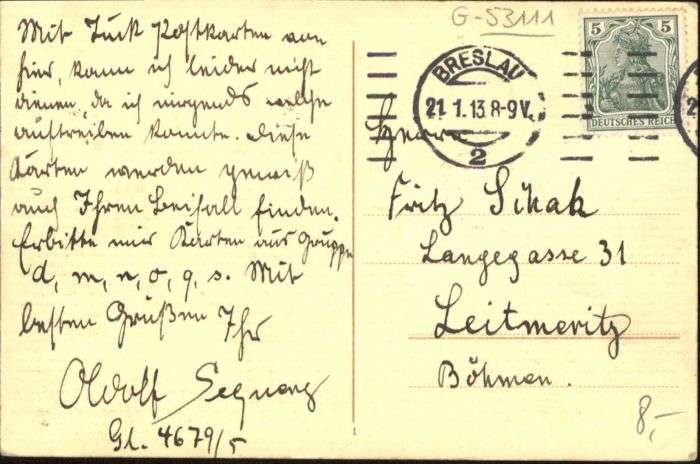 G-53111
Mit Tuck Postkarten von
hier, kann ich leider nicht
dienen, da ich nirgends welche
auftreiben konnte. Diese
Karten werden gewiß
auch Ihren Beifall finden.
Erbitte mir Karten aus Gruppe
d, m, n, o, q, s. Mit
besten Grüßen Ihr
Adolf
Gl. 4679/5
BRESLAU
21.1.13.8-9V.
2
5 5
DEUTSCHES REICH
Fritz Schak
Langegasse 31
Leitmeritz
Böhmen.
8,-